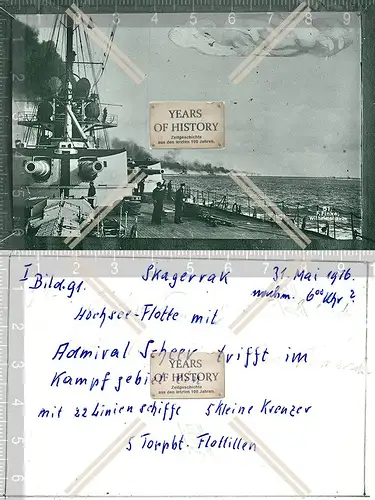 YEARS
OF HISTORY
Zeitgeschichte
aus den letzten 100 Jahren.
51
F. Finke
Wilhelmshaven
I Bild 91. Skagerrak 31. Mai 1916.
nachm. 6ºº Uhr ?
Hochsee-Flotte mit
Admiral Scheer trifft im
Kampfgebiet ein
YEARS
OF HISTORY
Zeitgeschichte
aus den letzten 100 Jahren.
mit 22 Linienschiffe 5 kleine Kreuzer
5 Torpbt. Flottillen